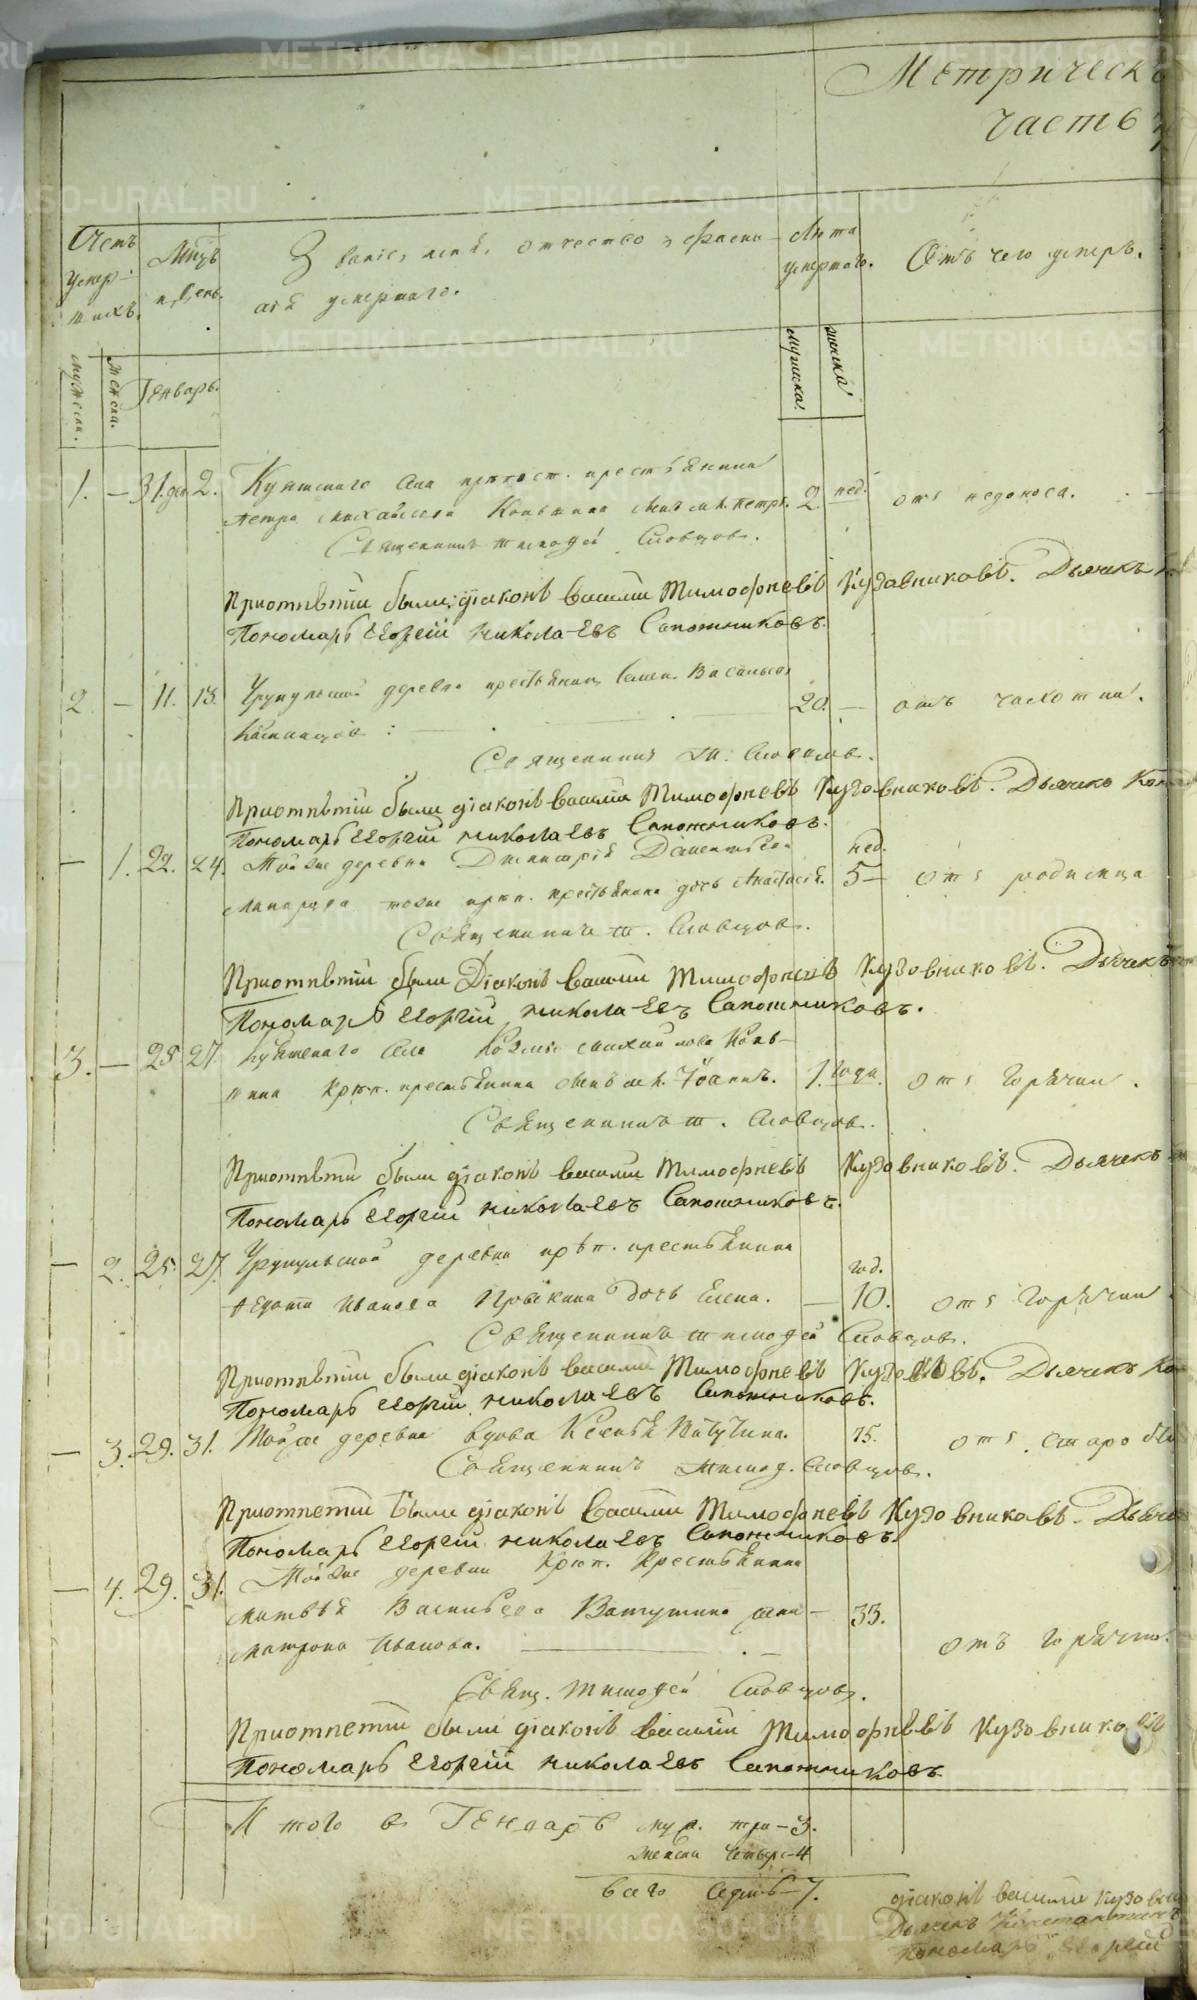 Метрическ
часть
Счетъ умер- шихъ.
Мцъ и День.
Званіе, имя, отчество и фами-
лія умершаго.
Лѣта умершаго.
Отъ чего умеръ.
мужеска.
женска.
Генварь.
мужеска.
женска.
1. — 31. дек 2. села крѣпост. крестьянина
Петра Михайлова сынъ мл. Петръ. 2. нед. отъ недоноса.
Священникъ Тимофей Словцовъ.
При отпѣтіи были: діаконъ Василій Тимофѣевъ Кузовниковъ. Дьячекъ
Пономарь Георгій Николаевъ Сапожниковъ.
2 — 11. 13. деревни крестьянинъ Васильевъ
20. — отъ чахотки.
Священникъ Ти. Словцовъ.
При отпѣтіи были діаконъ Василій Тимофѣевъ Кузовниковъ. Дьячекъ Кон
Пономарь Георгій Николаевъ Сапожниковъ.
— 1. 22. 24. Той же деревни Димитрія нед.
крѣп. крестьянина дочь Анастасія. 5 — отъ родимца
Священникъ Т. Словцовъ.
При отпѣтіи были Діаконъ Василій Тимофѣевъ Кузовниковъ. Дьячекъ
Пономарь Георгій Николаевъ Сапожниковъ.
3. — 25 27. села Козмы Михайлова
крѣп. крестьянина сынъ мл. Іоаннъ. 1. года. отъ горячки.
Священникъ Т. Словцовъ.
При отпѣтіи были діаконъ Василій Тимофѣевъ Кузовниковъ. Дьячекъ
Пономарь Георгій Николаевъ Сапожниковъ.
— 2. 25. 27. деревни крѣп. крестьянина
Федота Иванова дочь Елена. — 10. год. отъ горячки
Священникъ Тимофей Словцовъ.
При отпѣтіи были діаконъ Василій Тимофѣевъ Дьячекъ Кон
Пономарь Георгій Николаевъ Сапожниковъ.
— 3. 29. 31. Той же деревни вдова Ксенія Ватутина. 75. отъ старо
Священникъ Тимоф. Словцовъ.
При отпетіи были діаконъ Василій Тимофѣевъ Кузовниковъ. Дьяче
Пономарь Георгій Николаевъ Сапожниковъ.
— 4. 29. 31. Той же деревни крѣп. крестьянина
Матвѣя Васильева Ватутина жена — 33.
Матрона Иванова. отъ горячки.
Свящ. Тимофей Словцовъ.
При отпетіи были діаконъ Василій Тимофѣевъ Кузовниковъ
Пономарь Георгій Николаевъ Сапожниковъ
Итого въ Генварѣ муж. три — 3.
женска четыре — 4
всего седмь — 7.
діаконъ Василій Кузовни
Дьячекъ Константинъ
Пономарь Георгій